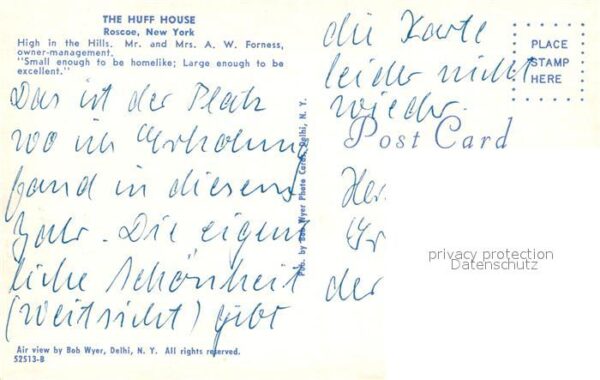 THE HUFF HOUSE
Roscoe, New York
High in the Hills. Mr. and Mrs. A. W. Forness,
owner-management.
"Small enough to be homelike; Large enough to
be excellent."
Das ist der Platz
wo ich Erholung
fand in diesem
Jahr. Die eigent
liche Schönheit
(Weitsicht) gibt
Air view by Bob Wyer, Delhi, N. Y. All rights reserved.
52513-B
Pub. by Bob Wyer Photo Cards, Delhi, N. Y.
die Karte
leider nicht
wieder.
PLACE
STAMP
HERE
Post Card
Her
Gr
der
privacy protection
Datenschutz